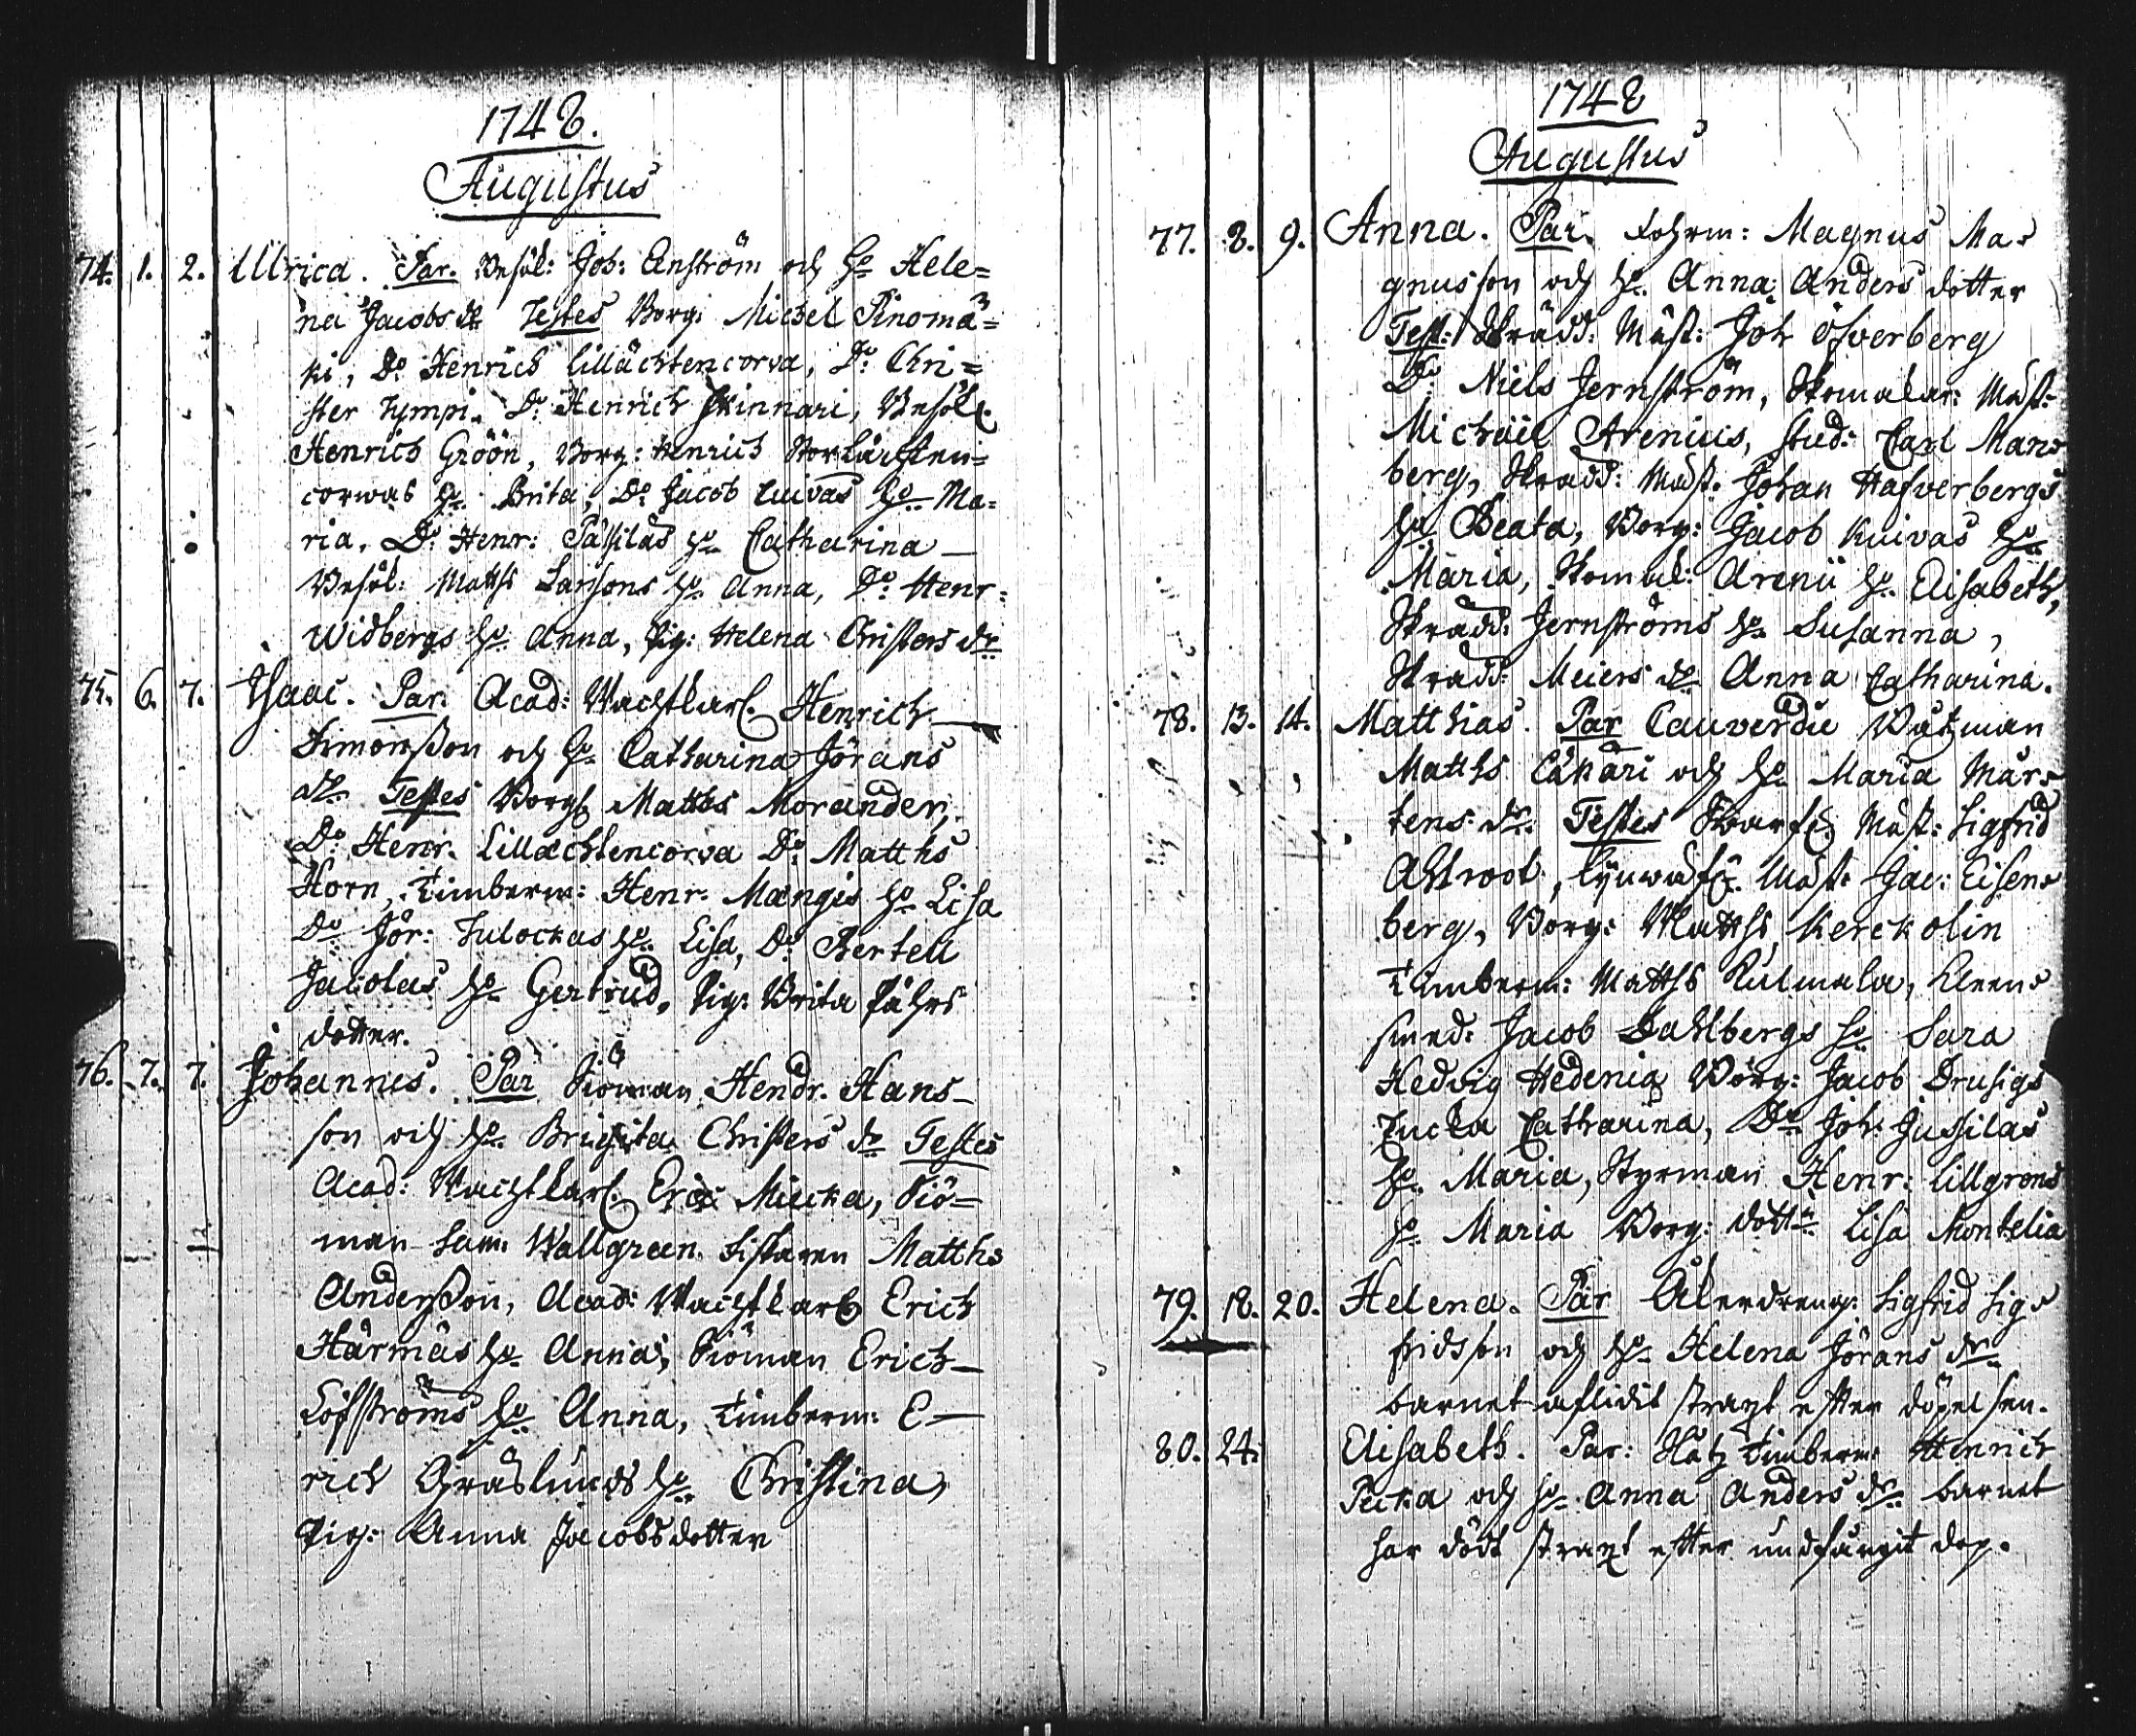 1748.
Augustus
74. 1. 2. Ulrica. Par. Besök: Joh: Enström och h:o Hele=
na Jacobs dr Testes Borg: Michel Pinomä=
ki, D:o Henrich Lillächtencorva, D:o Chri=
ster Tympi. D:o Henrich Skinnari, Besök:
Henrich Gröön, Borg: Henrich Storlächten=
corwas h:o Brita, D:o Jacob Kuivas h:o Ma=
ria. D:o Henr: Passilas h:o Catharina
Besök: Matths Larsons h:o Anna, D:o Henr:
Widbergs h:o Anna, Pig: Helena Christers dr
75. 6. 7. Isaac. Par. Acad: Wachtkarl. Henrich
Simonsson och h:o Catharina Jörans
dr Testes Borg: Matths Morander,
D:o Henr. Lillächtencorva D:o Matths
Horn, Timberm: Henr. Mængis h:o Lisa
D:o Jör: Tulockas h:o Lisa, D:o Bertell
Jacolas h:o Gertrud, Pig: Brita Påhls
dotter.
76. 7. 7. Johannes. Par Siöman Hendr. Hans-
son och h:o Brigita Christers dr Testes
Acad: Wachtkarl. Eric Miecka, Siö-
man Sam: Wallgreen. Fiskaren Matths
Andersson, Acad: Wachtkarls Erich
Härmäs h:o Anna, Siöman Erich
Löfströms h:o Anna, Timberm: E-
rich Gräslunds h:o Christina,
Pig: Anna Jacobsdotter
1748
Augustus
77. 8. 9. Anna. Par. Fohrm: Magnus Ma-
gnusson och h:o Anna Anders dotter
Test: Skrädd: Mäst: Joh Öfverberg
D:o Niels Jernström, Skomakar: Mäst:
Michäel Arenius, Stud: Carl Man-
berg, Skradd: Mäst. Johan Hafverbergs
h:o Beata, Borg: Jacob Kuivas h:o
Maria, Skomak: Arenii h:o Elisabeth,
Skradd: Jernströms h:o Susanna,
Skradd: Meiers dr Anna Catharina.
78. 13. 14. Matthias. Par Cauverdie Båtzman
Matths Cakari och h:o Maria Mår-
tens dr. Testes Mäst: Sigfrid
Ahlroot, Mäst: Jac: Eisen-
berg, Borg: Matths Kerckolin
Timberm: Matths Kulmala, Kleen-
smed: Jacob Dahlbergs h:o Sara
Hedvig Hedenia Borg: Jacob Drusigs
Enka Catharina, D:o Joh: Jussilas
h:o Maria, Styrman Henr: Lillgrens
h:o Maria Borg: dottr Lisa Montelia
79. 18. 20. Helena. Par Åkerdreng: Sigfrid Sig-
fridsson och h:o Helena Jörans dr
barnet aflidit straxt efter döpelsen.
80. 24. Elisabeth. Par: Timberm: Henrich
Pecka och h:o Anna Anders dr barnet
har dödt straxt efter undfångit dop.